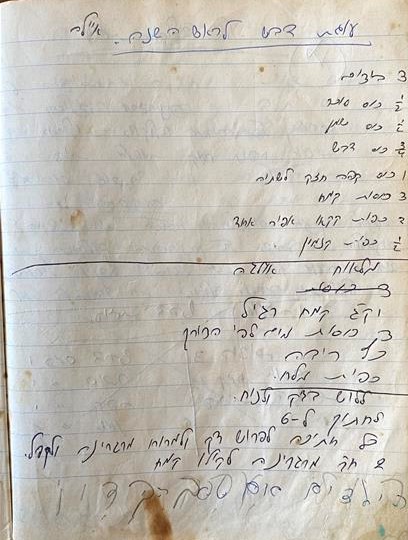 עוגת דבש לראש השנה. אילה
3 ביצים
1/2 כוס סוכר
1/2 כוס שמן
3/4 כוס דבש
1 כוס קפה חזק לשתיה
3 כוסות קמח
2 כפות קקאו אפיה אחד
1/2 כפית קנמון
מלאווח אילנה
3 כוסות
1 ק"ג קמח רגיל
3 כוסות מים לפי הצורך
כף ריבה
כפית מלח.
ללוש בצק ולניח.
לחתוך ל-6
כל חתיכה לפרוש דק ולמרוח מרגרינה ולקפל.
2 חב' מרגרינה לקילו קמח